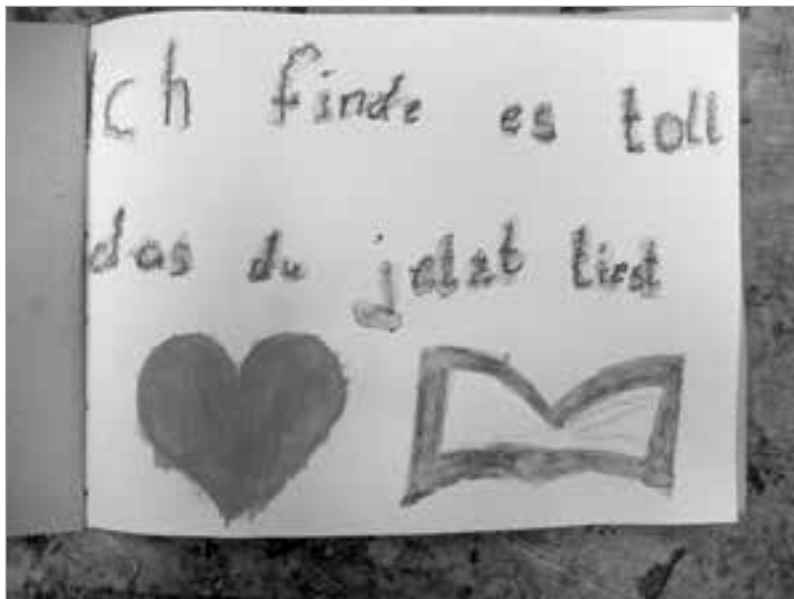 Ich finde es toll
das du jetzt liest